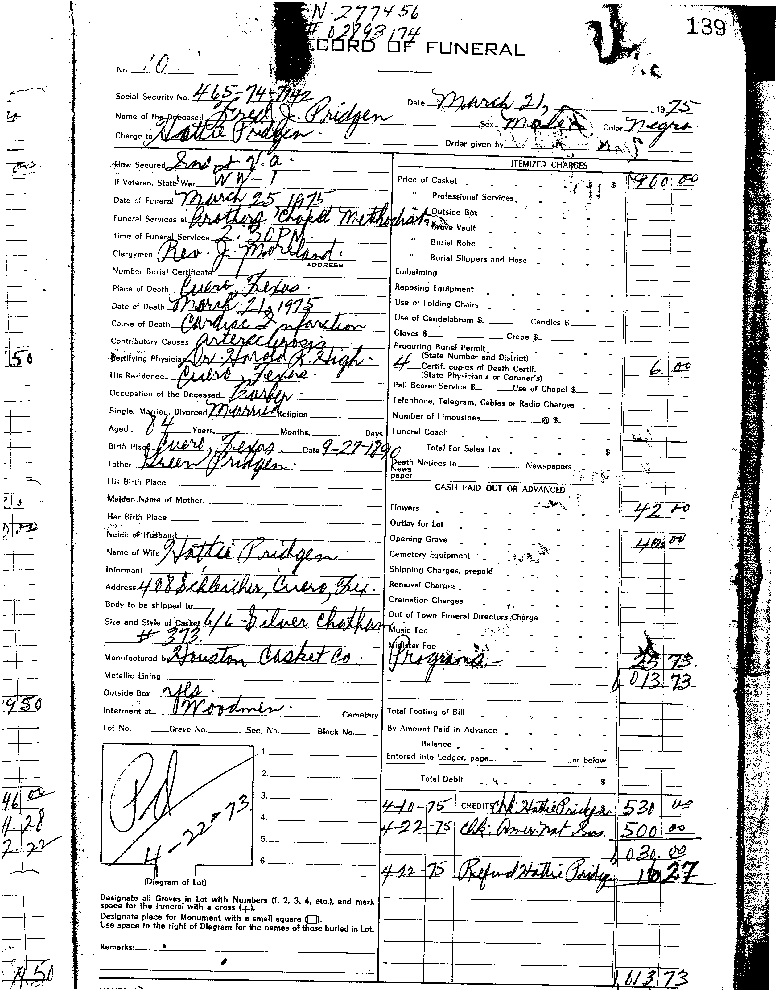 N 277456
# 02793174
139
RECORD OF FUNERAL
No. 10
Social Security No. 465-74-7942
Date March 21, 1975
Name of the Deceased Fred J. Pridgen
Sex Male Color Negro
Charge to Hattie Pridgen
Order given by
How Secured Ins + V.A.
If Veteran, State War WW I
Date of Funeral March 25 1975
Funeral Services at Brothers Chapel Methodist
Time of Funeral Services 2:30 PM
Clergyman Rev. J. Moreland
ADDRESS
Number Burial Certificate
Place of Death Cuero, Texas
Date of Death March 21, 1975
Cause of Death Cardiac Infarction
Contributory Causes Arterosclerosis
Certifying Physician Dr. Harold R. High
His Residence Cuero, Texas
Occupation of the Deceased
Single, Married, Divorced Married Religion
Aged 84 Years, Months, Days
Birth Place Cuero, Texas Date 9-27-1890
Father Green Pridgen
His Birth Place
Maiden Name of Mother
Her Birth Place
Name of Husband
Name of Wife Hattie Pridgen
Informant
Address 408 Schleicher, Cuero, Tex.
Body to be shipped to
Size and Style of Casket 6/6 Silver Chatham
# 373
Manufactured by Houston Casket Co.
Metallic Lining
Outside Box yes
Interment at Woodmen Cemetery
Lot No. Grave No. Sec. No. Block No.
Pd
4-22-73
1
2
3
4
5
6
(Diagram of Lot)
Designate all Graves in Lot with Numbers (1, 2, 3, 4, etc.), and mark
space for the funeral with a cross (+).
Designate place for Monument with a small square (□).
Use space to the right of Diagram for the names of those buried in Lot.
Remarks:
ITEMIZED CHARGES
Price of Casket $ 900 00
" Professional Services
" Outside Box
" Grave Vault
" Burial Robe
" Burial Slippers and Hose
Embalming
Reposing Equipment
Use of Folding Chairs
Use of Candelabrum $ Candles $
Gloves $ Crepe $
Procuring Burial Permit
(State Number and District)
4 Certif. copies of Death Certif. 6 00
(State Physician's or Coroner's)
Pall Bearer Service $ Use of Chapel $
Telephone, Telegram, Cables or Radio Charges
Number of Limousines @ $
Funeral Coach
Total For Sales Tax $
Death Notices in Newspapers
News
paper
CASH PAID OUT OR ADVANCED
Flowers 42 00
Outlay for Lot
Opening Grave 40 00
Cemetery Equipment
Shipping Charges, prepaid
Removal Charges
Cremation Charges
Out of Town Funeral Directors Charge
Music Fee
Minister Fee
Programs 25 73
1013 73
Total Footing of Bill
By Amount Paid in Advance
Balance
Entered into Ledger, page or below
Total Debit $
4-10-75 CREDITS Chk Hattie Pridgen 530 00
4-22-75 Chk. Amer. Nat Ins. 500 00
1030 00
4-22-75 Refund Hattie Pridg 16 27
1013 73
00
50
950
46 00
4 28
2 22